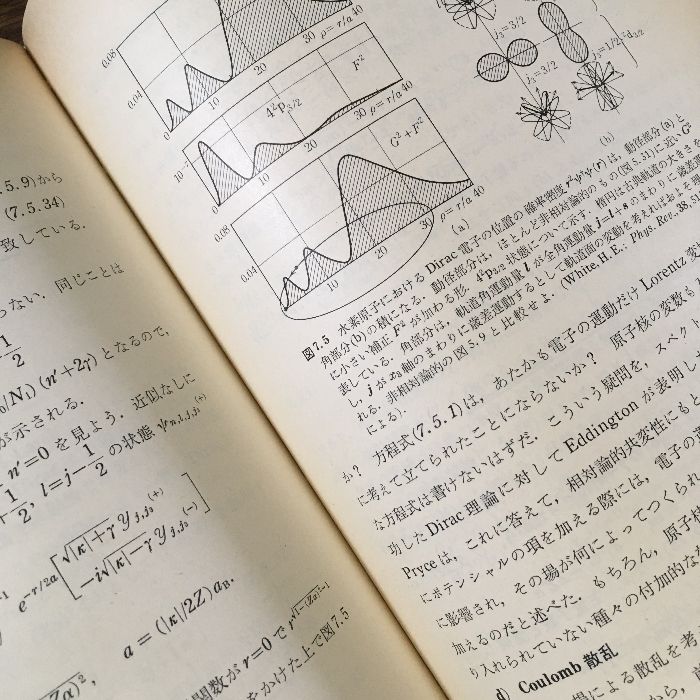 5.9)から
(7.5.34)
致している.
同じことは
となるので,
(n'+2γ)
が示される.
n'=0 を見よう. 近似なしに
l=j-1/2 の状態
e^{-r/2a}
√|κ|+γ 𝒴_{j,j_3}^{(+)}
-i√|κ|-γ 𝒴_{j,j_3}^{(-)}
a=(|κ|/2Z)a_B.
関数が r=0 で
をかけた上で図7.5
0.08
0.04
0
10
20
30
40
ρ=r/a
4^2p_{3/2}
F^2
10
20
30
ρ=r/a 40
G^2+F^2
0.08
0.04
0
10
20
30
ρ=r/a 40
(a)
j_3=3/2
j_3=3/2
j_3=1/2
(b)
図7.5 水素原子における Dirac 電子の位置の確率密度
は, 動径部分(a)と
角部分(b)の積になる. 動径部分は, ほとんど非相対論的のもの(図5.31)に近い G^2
に小さい補正 F^2 が加わる形. 4^2p_{3/2} 状態について示す.
表している. 角部分は, 軌道角運動量 l が全角運動量 j=l+s のまわりに歳差
し, j が x_3 軸のまわりに歳差運動するとして軌道面の変動を考えれば
れる. 非相対論的の図5.9と比較せよ. (White, H.E.: Phys. Rev., 38, 51
による).
か? 方程式(7.5.1)は, あたかも電子の運動だけ Lorentz 変
に考えて立てられたことにならないか? 原子核の変数も
な方程式は書けないはずだ. こういう疑問を, スペクト
功した Dirac 理論に対して Eddington が表明し
Pryce は, これに答えて, 相対論的共変性にもと
にポテンシャルの項を加える際には, 電子の運
に影響され, その場が何によってつくられ
加えるのだと述べた. もちろん, 原子核
り入れられていない種々の付加的な
d) Coulomb 散乱
による散乱を考